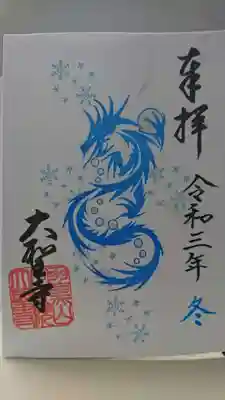 奉拝
令和三年
冬
大聖寺